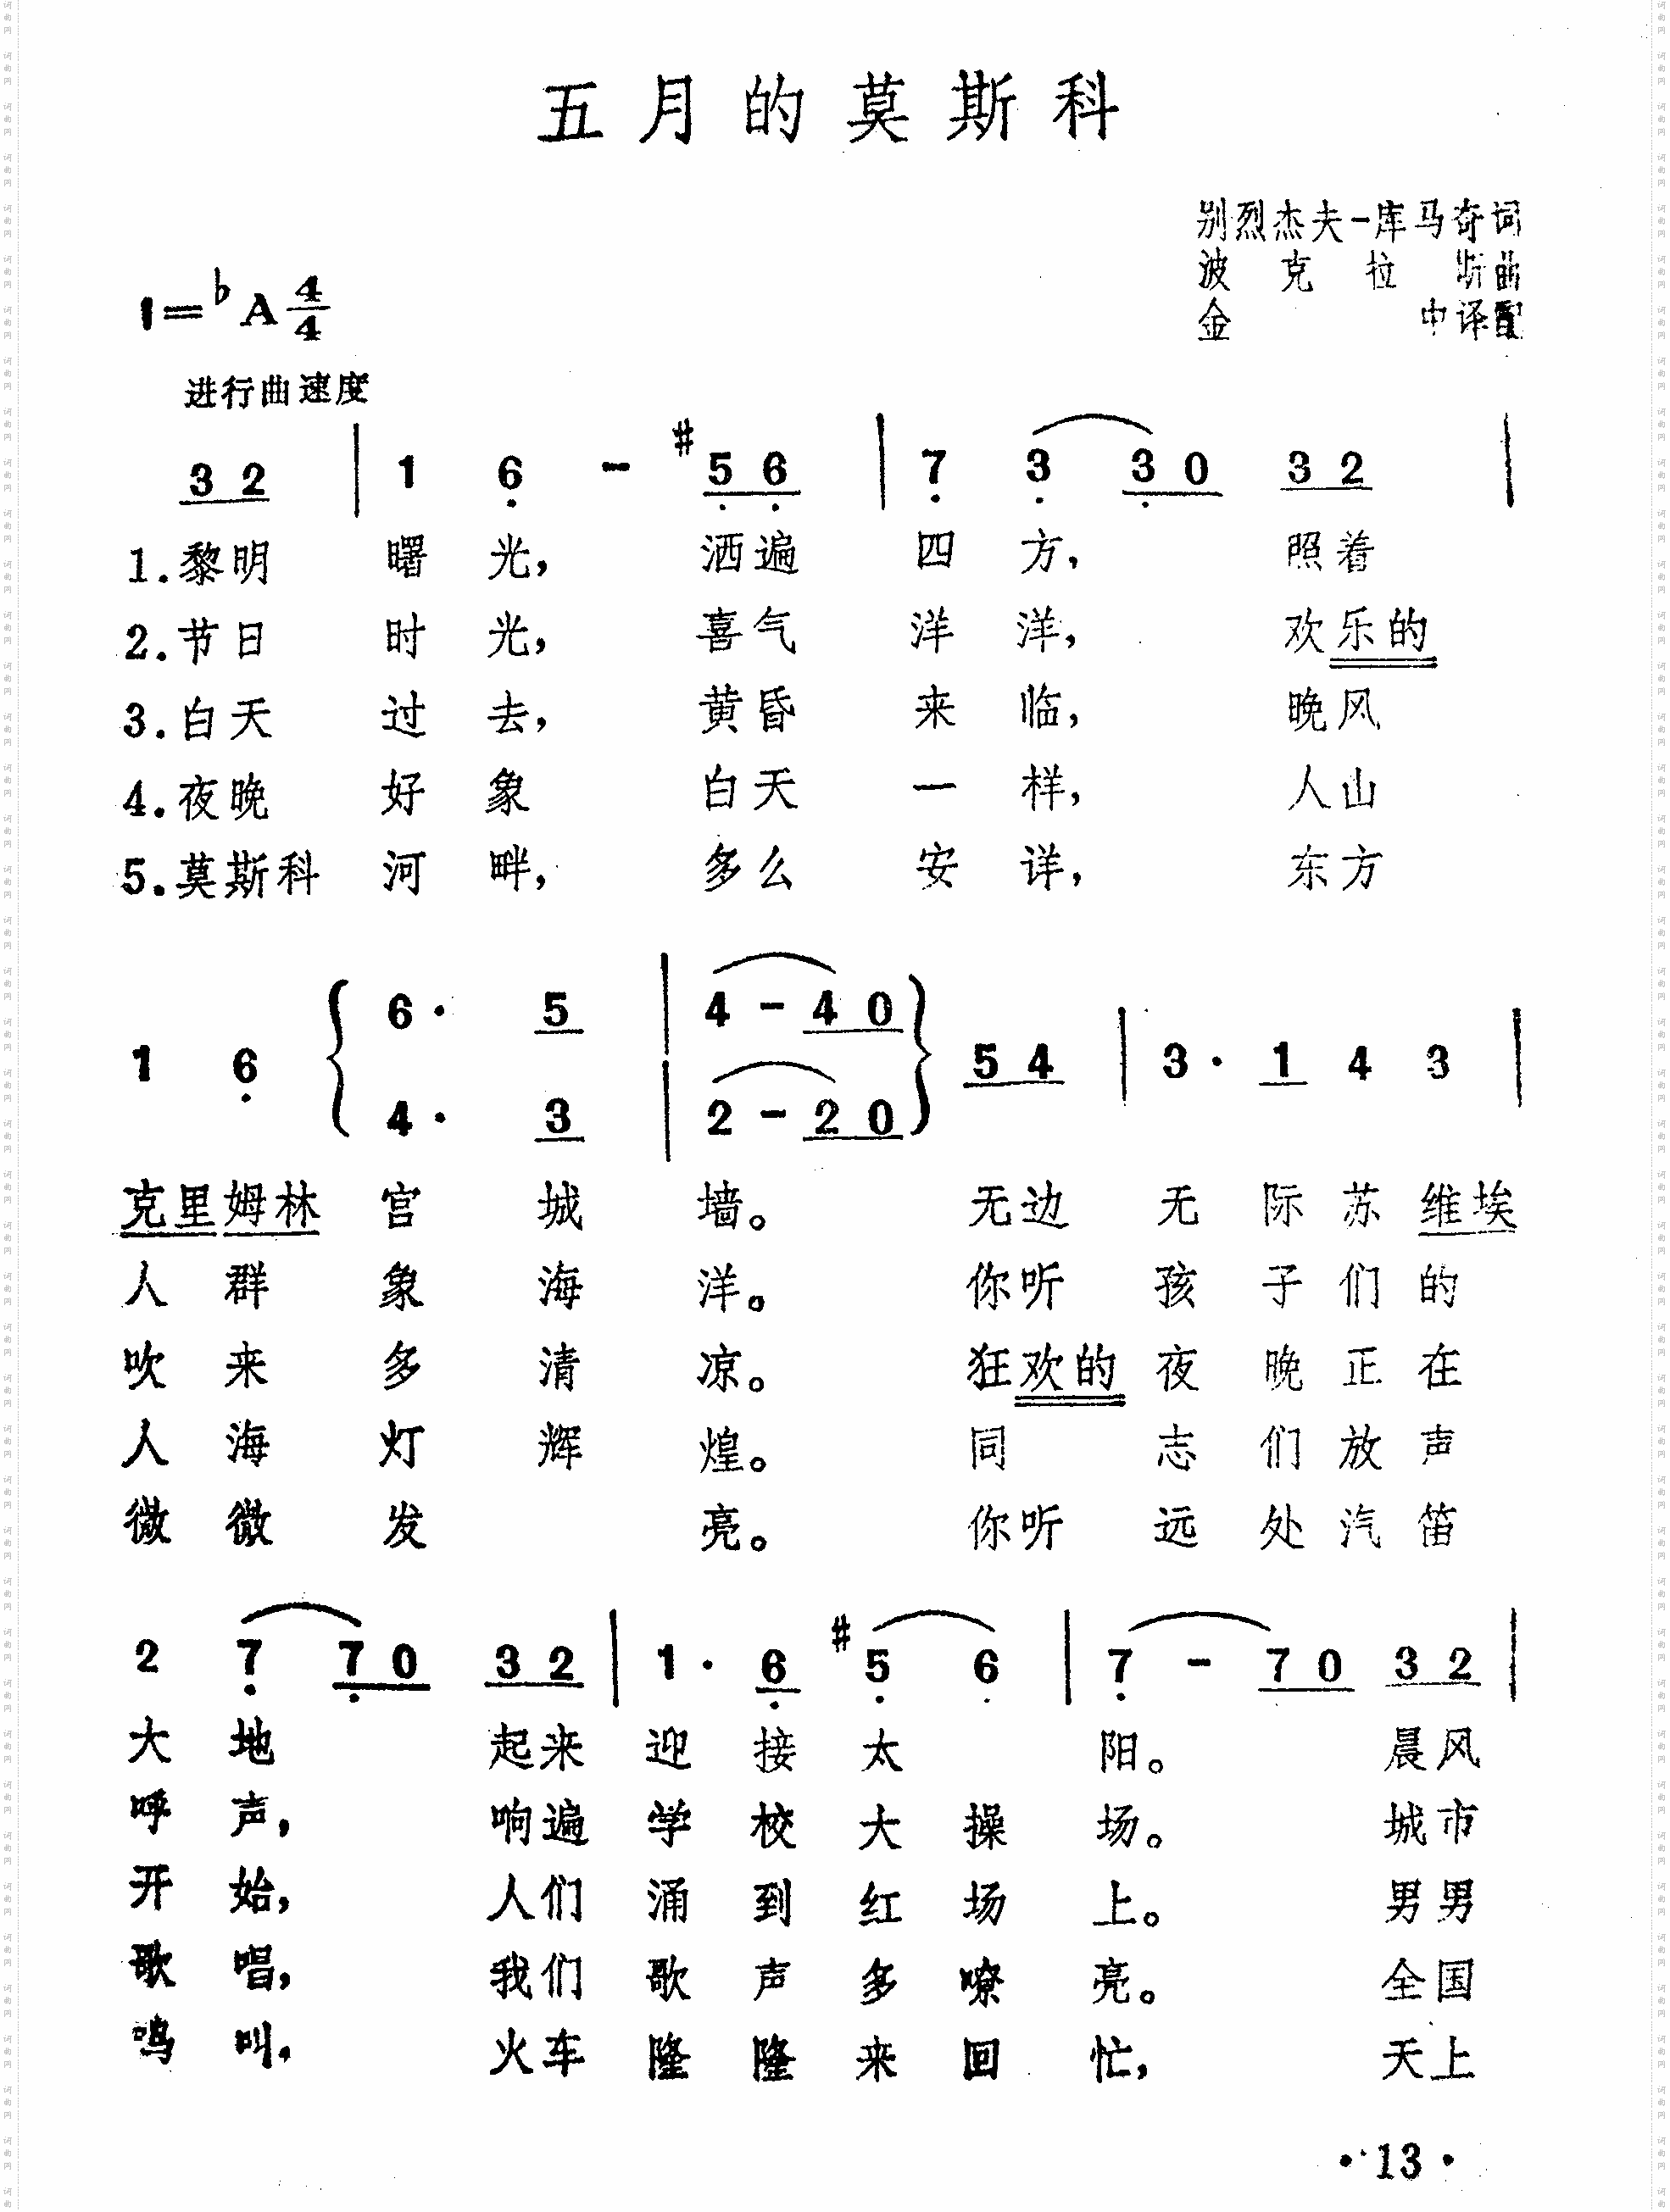 五月的莫斯科
别烈杰夫-库马奇词
波克拉斯曲
金中译配
1=♭A 4/4
进行曲速度
3 2 | 1 6 - #5 6 | 7 3 3 0 3 2 |
1.黎明 曙 光， 洒遍 四 方， 照着
2.节日 时 光， 喜气 洋 洋， 欢乐的
3.白天 过 去， 黄昏 来 临， 晚风
4.夜晚 好 象 白天 一 样， 人山
5.莫斯科 河 畔， 多么 安 详， 东方
6· 5 | 4 - 4 0
1 6 { } 5 4 | 3· 1 4 3 |
4· 3 | 2 - 2 0
克里姆林 宫 城 墙。 无边 无 际 苏 维埃
人 群 象 海 洋。 你听 孩 子 们 的
吹 来 多 清 凉。 狂欢的 夜 晚 正 在
人 海 灯 辉 煌。 同 志 们 放 声
微 微 发 亮。 你听 远 处 汽 笛
2 7 7 0 3 2 | 1· 6 #5 6 | 7 - 7 0 3 2 |
大 地 起来 迎 接 太 阳。 晨风
呼 声， 响遍 学 校 大 操 场。 城市
开 始， 人们 涌 到 红 场 上。 男男
歌 唱， 我们 歌 声 多 嘹 亮。 全国
鸣 叫， 火车 隆 隆 来 回 忙， 天上
·13·
词曲网